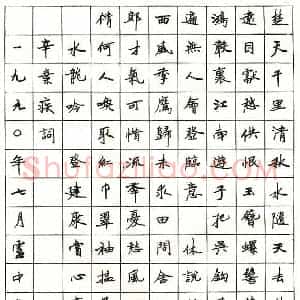 楚天千里清秋水隨天去
遠目獻愁供恨玉簪螺髻
鴻聲裏江南遊子把吳鉤
遍無人會登臨意休說
西風季鷹歸未求田問舍
郎才氣可惜流年憂愁風
倩何人喚取紅巾翠袖搵
水龍吟 登建康賞心
辛棄疾詞
一九九〇年七月靈中
Shufaziliao.com